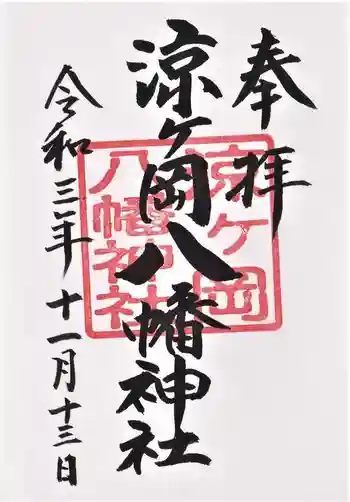 奉拝
涼ヶ岡八幡神社
令和三年十一月十三日
涼ヶ岡
八幡神社